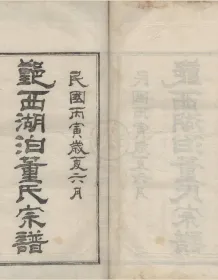 民國丙寅歲夏六月
西湖泊董氏宗譜